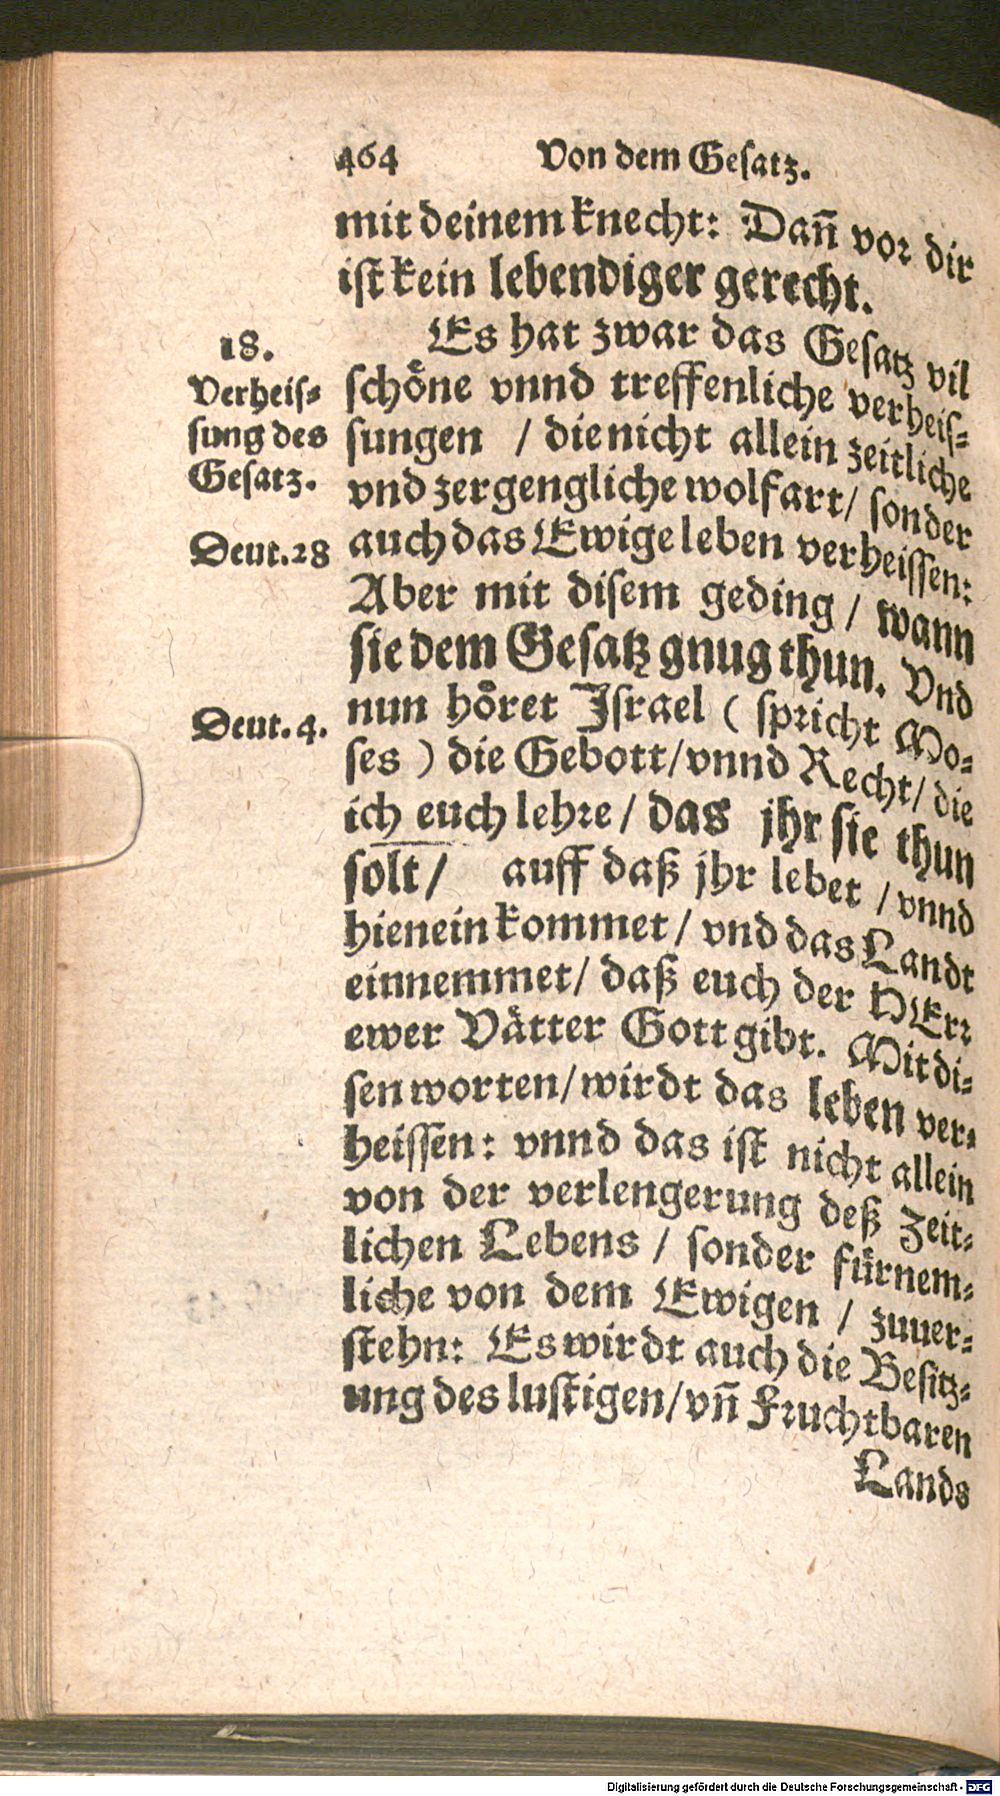 464 Von dem Gesatz.
mit deinem knecht: Dañ vor dir
ist kein lebendiger gerecht.
Es hat zwar das Gesatz vil
schöne vnnd treffenliche verheis-
sungen / die nicht allein zeitliche
vnd zergengliche wolfart / sonder
auch das Ewige leben verheissen:
Aber mit disem geding / wann
sie dem Gesatz gnug thun. Vnd
nun höret Israel ( spricht Mo-
ses ) die Gebott / vnnd Recht / die
ich euch lehre / das jhr sie thun
solt / auff daß jhr lebet / vnnd
hienein kommet / vnd das Landt
einnemmet / daß euch der HErr
ewer Vätter Gott gibt. Mit di-
sen worten / wirdt das leben ver-
heissen: vnnd das ist nicht allein
von der verlengerung deß Zeit-
lichen Lebens / sonder fürnem-
liche von dem Ewigen / zuuer-
stehn: Es wirdt auch die Besitz-
ung des lustigen / vñ Fruchtbaren
Lands
18.
Verheis-
sung des
Gesatz.
Deut. 28
Deut. 4.
Digitalisierung gefördert durch die Deutsche Forschungsgemeinschaft - DFG